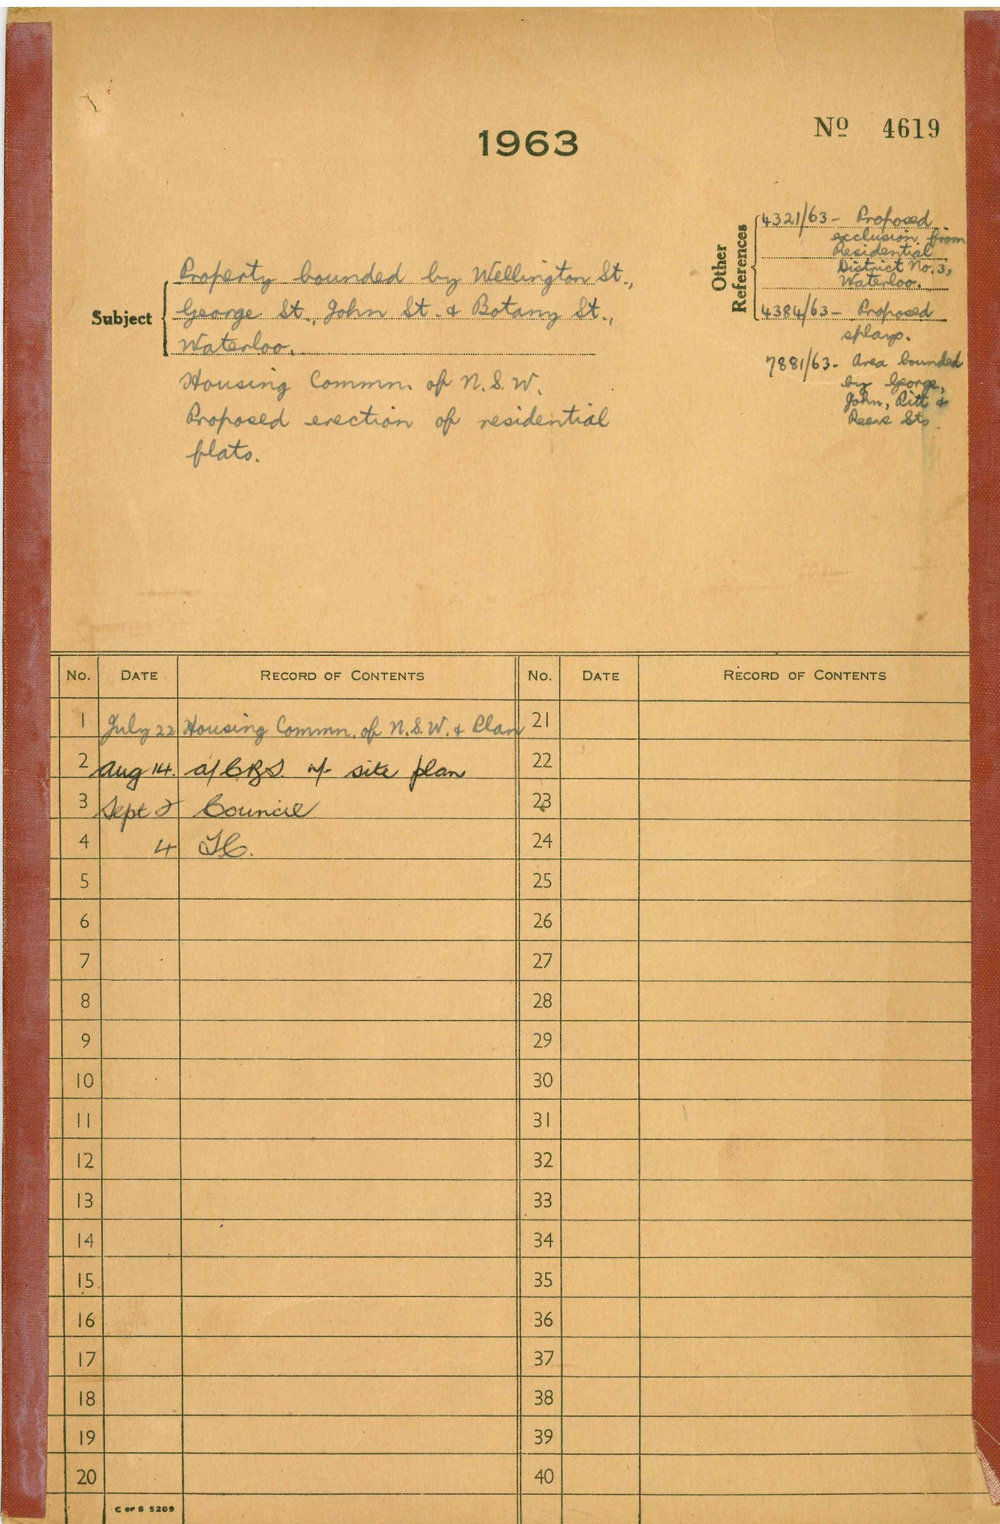 1963
No 4619
Subject
Property bounded by Wellington St.,
George St., John St. & Botany St.,
Waterloo.
Housing Commn. of N.S.W.
Proposed erection of residential
flats.
Other References
4321/63 - Proposed
exclusion from
Residential
District No. 3,
Waterloo.
4384/63 - Proposed
splays.
7881/63 - Area bounded
by George,
John, Pitt &
Reeve Sts.
No. DATE RECORD OF CONTENTS No. DATE RECORD OF CONTENTS
1 July 22 Housing Commn. of N.S.W. & Plan 21
2 Aug 14. a/CBS. w/- site plan 22
3 Sept 2 Council 23
4 4 T.C. 24
5 25
6 26
7 27
8 28
9 29
10 30
11 31
12 32
13 33
14 34
15 35
16 36
17 37
18 38
19 39
20 40
C OF S 5209